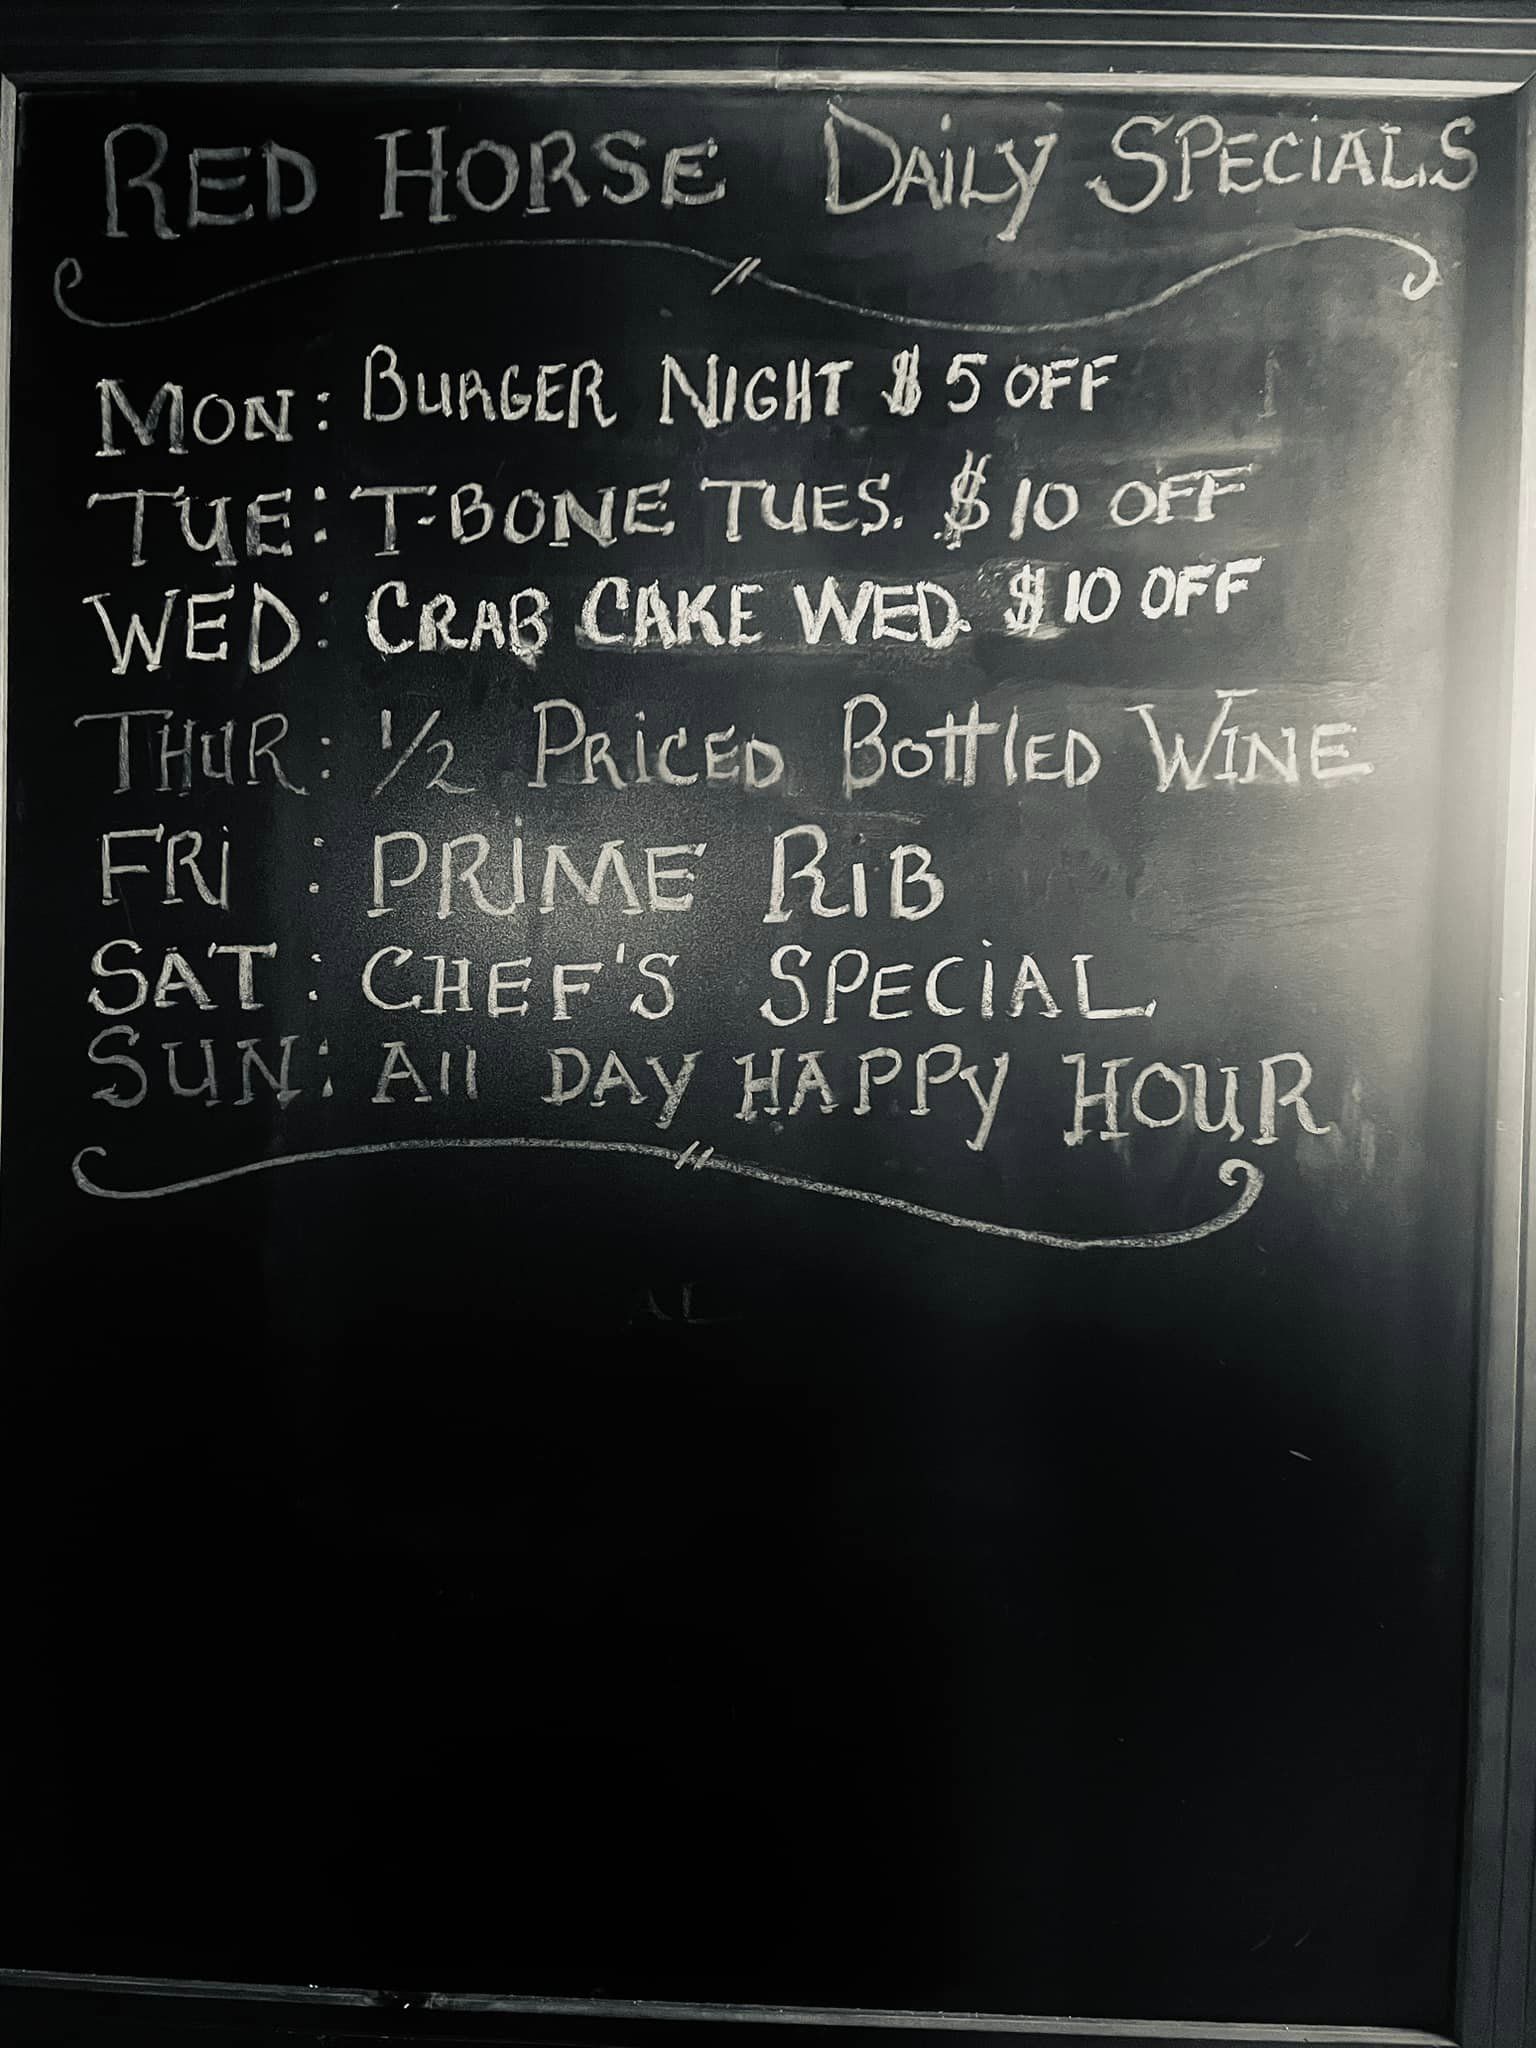 RED HORSE DAiLY SPECiALS
MON: BURGER NIGHT $5 OFF
TUE: T-BONE TUES. $10 OFF
WED: CRAB CAKE WED. $10 OFF
THUR: 1/2 PRiCED BOttlED WINE
FRi : PRiME RiB
SAT: CHEF'S SPECiAL
SUN: All DAY HAPPY HOUR